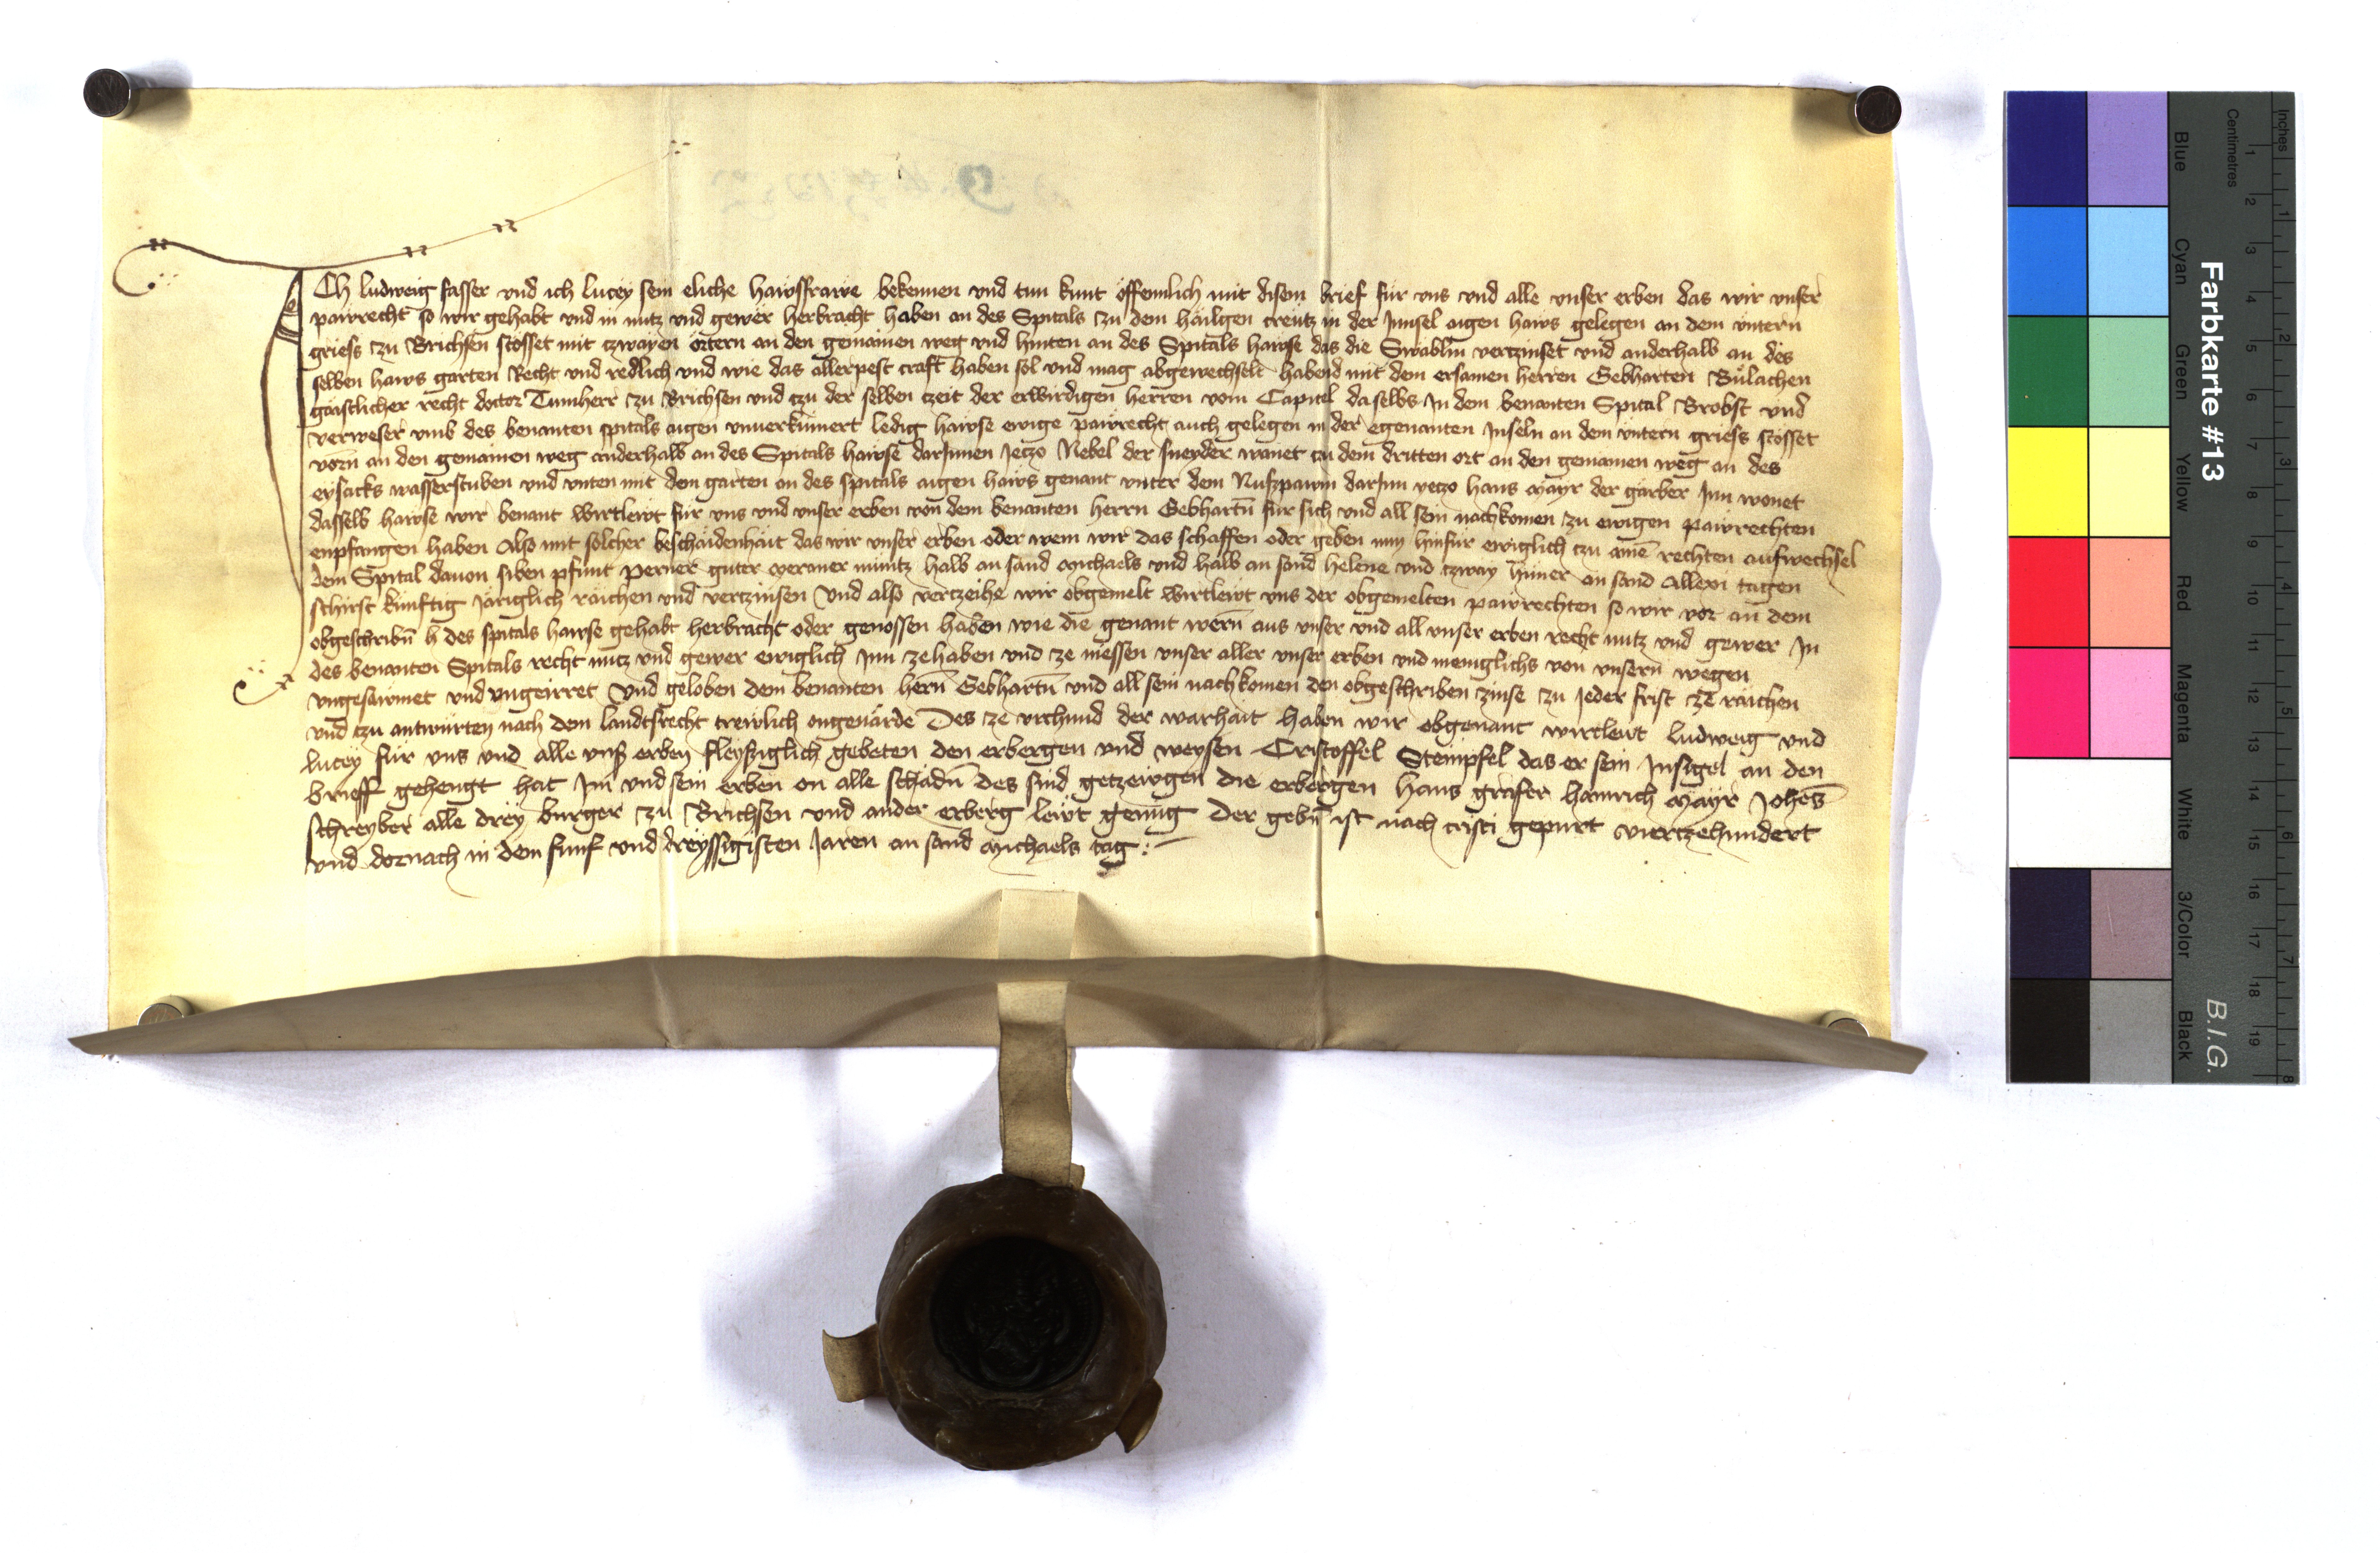 Ich ludweig fasser vnd ich lucey sein eliche hawsfrawe bekennen vnd tun kunt offennlich mit disem brief für vns vnd alle vnser erben das wir vnser
pawrecht so wir gehabt vnd in nutz vnd gewer herbracht haben an des Spitals zu dem häiligen creütz in der Innsel aigen haws gelegen an dem vntern
griess zu Brichsen stosset mit tzwayen örtern an den gemainen weg vnd hinten an des Spitals hawse das die Swäblin vertzinset vnd anderhalb an des
selben haws garten Recht vnd redlich vnd wie das allerpest craft haben sol vnd mag abgewechselt habend mit dem ersamen herren Gebharten Bülachen
gäistlicher recht doctor Tumherr zu Brichsen vnd tzu der selben tzeit der erwirdigen herren vom Capitel daselbs In dem benanten Spital Brobst vnd
verweser vmb des benanten spitals aigen vnuerkümert ledig hawse ewige pawrecht auch gelegen in der egenanten Inseln an dem vntern griess stösset
vorn an den gemainen weg anderhalb an des Spitals hawse darInnen Jetzo Nebel der sneyder wonet tzu dem dritten ort an den gemainen weg an des
eysacks wasserstuben vnd vnten mit dem garten an des spitals aigen haws genant vnter dem Nußpawm darInn yetzo hans mayr der gärber Inn wonet
dasselb hawse wir benant Wirtlewt für vns vnd vnser erben von dem benanten herrn Gebhartn für sich vnd all sein nachkomen zu ewigen pawrechten
enpfangen haben Also mit solcher beschäidenhäit das wir vnser erben oder wem wir das schaffen oder geben nun hinfür ewiglich tzu aine rechten aufwechsel
dem Spital dauon siben pfunt perner guter meraner münitz halb an sand michaels vnd halb an sand helene vnd tzway hüner an sand Allexn tagen
schirst künftig järiglich räichen vnd vertzinsen Vnd also vertzeihe wir obgemelt Wirtlewt vns der obgemelten pawrechten so wir vor an dem
obgeschribn h des spitals hawse gehabt herbracht oder genossen haben wie die genant wern aus vnser vnd all vnser erben recht nutz vnd gewer In
des benanten Spitals recht nutz vnd gewer ewiglich Inn zehaben vnd ze niessen vnser aller vnser erben vnd meniglichs von vnsern wegen
vngesawmet vnd vngeirret Vnd geloben dem benanten hern Gebhartn vnd all sein nachkomen den obgeschriben zinse zu Jeder frist ze räichen
vnd tzu antwürten nach dem landtsrecht trewlich ongeuärde Des ze vrchund der warhait haben wir obgenant wirtlewt ludweig vnd
lucey für vns vnd alle vnß erben fleyßiglich gebeten den erbergen vnd weysen Cristoffel Stempfel das er sein Insigel an den
brieff gehengt hat Im vnd sein erben on alle schädn Des sind getzewgen die erbergen Hans grafer hainrich mayr Johes
schreyber alle drey burger zu Brichsen vnd ander erberg lewt genug Der gebn ist nach cristi gepurt viertzehundert
vnd dornach in dem funf vnd dreyssigisten Jaren an sand michaels tag :-
Farbkarte #13
B.I.G.
Inches
Centimetres
Blue
Cyan
Green
Yellow
Red
Magenta
White
3/Color
Black
1 2 3 4 5 6 7 8 9 10 11 12 13 14 15 16 17 18 19
1 2 3 4 5 6 7 8